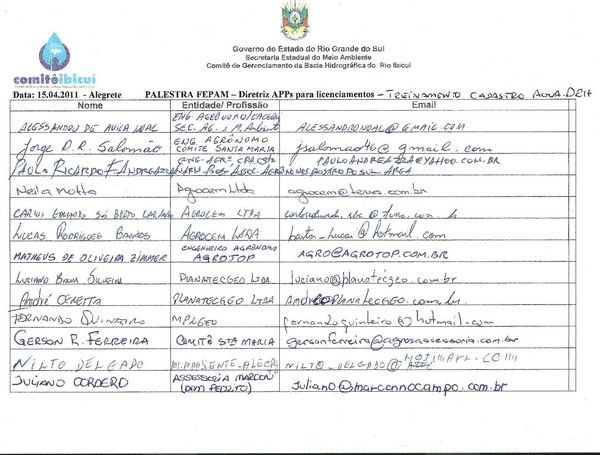 comitêibicuí
Governo do Estado do Rio Grande do Sul
Secretaria Estadual do Meio Ambiente
Comitê de Gerenciamento da Bacia Hidrográfica do Rio Ibicuí
Data: 15.04.2011 - Alegrete PALESTRA FEPAM – Diretriz APPs para licenciamentos – TREINAMENTO CADASTRO AGUA-DRH
Nome Entidade/ Profissão Email
ENG. AGRÔNOMO
SEC. AG. ALESSANDRONOAL@GMAIL.COM
Jorge D.R. Salomão ENG. AGRÔNOMO
COMITE SANTA MARIA jsalomao@gmail.com
PAULO RICARDO F.
Neila Motta Agrocem Ltda agrocem@terra.com.br
CARLOS EDUARDO AGROCEM LTDA
LUCAS RODRIGUES BASTOS AGROCEM LTDA bastos_lucas@hotmail.com
MATHEUS DE OLIVEIRA ZIMMER ENGENHEIRO AGRÔNOMO
AGROTOP AGRO@AGROTOP.COM.BR
LUCIANO SILVEIRA PLANATECGEO LTDA luciano@planatecgeo.com.br
André CERETTA PLANATECGEO LTDA
FERNANDO QUINTEIRO MPLGEO fernandoquinteiro@hotmail.com
GERSON R. FERREIRA COMITÊ STª MARIA gersonferreira@agrosassessoria.com.br
NILTO DELGADO NILTO_DELGADO@
JULIANO CORDERO ASSESSORIA MARCON
(DOM PEDRITO) juliano@marconnocampo.com.br